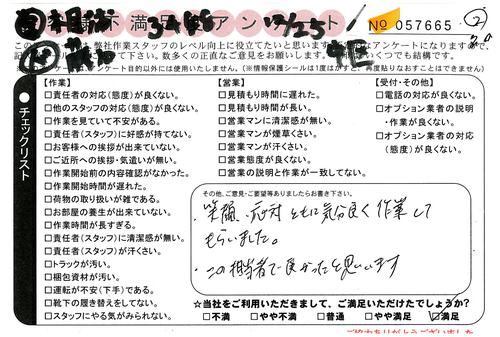 様不満足度アンケート
№ 057665
弊社作業スタッフのレベル向上に役立てたいと思います
記 して下さい。数多くの正直なご意見をお願いします いくつでも結構です。
アンケート目的以外には使用いたしません。(※情報保護シールは1度はがすと、再度貼りなおすことはできません)
チェックリスト
【作業】
□責任者の対応(態度)が良くない。
□他のスタッフの対応(態度)が良くない。
□作業を見ていて不安がある。
□責任者(スタッフ)に好感が持てない。
□お客様への挨拶が出来ていない。
□ご近所への挨拶・気遣いが無い。
□作業開始前の内容確認がなかった。
□作業開始時間が遅れた。
□荷物の取り扱いが雑である。
□お部屋の養生が出来ていない。
□作業時間が長すぎる。
□責任者(スタッフ)に清潔感が無い。
□責任者(スタッフ)が汗くさい。
□トラックが汚い。
□梱包資材が汚い。
□運転が不安(下手)である。
□靴下の履き替えをしてない。
□スタッフにやる気がみられない。
【営業】
□見積もり時間に遅れた。
□見積もり時間が長い。
□営業マンに清潔感が無い。
□営業マンが煙草くさい。
□営業マンが汗くさい。
□営業態度が良くない。
□営業の説明と作業が一致してない。
【受付・その他】
□電話の対応が良くない。
□オプション業者の説明
・作業が良くない。
□オプション業者の対応
(態度)が良くない。
その他、ご意見・ご要望等ありましたらお書き下さい。
・笑顔、応対 ともに気分良く作業して
もらいました。
・この担当者で良かったと思います
☆当社をご利用いただきまして、ご満足いただけたでしょうか?
□不満 □やや不満 □普通 □やや満足 ☑満足
ご協力ありがとうございました